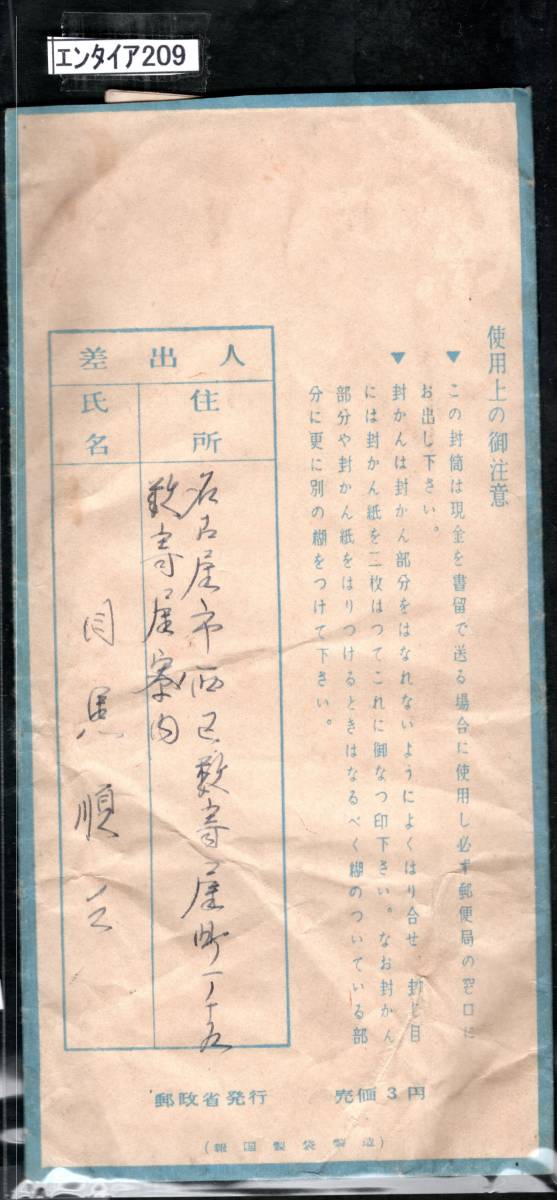 エンタイア209
使用上の御注意
▼この封筒は現金を書留で送る場合に使用し必ず郵便局の窓口に
お出し下さい。
▼封かんは封かん部分をはなれないようによくはり合せ、封じ目
には封かん紙を二枚はつてこれに御なつ印下さい。なお封かん
部分や封かん紙をはりつけるときはなるべく糊のついている部
分に更に別の糊をつけて下さい。
差出人
住所
名古屋市西区数寄屋町一ノ十九
数寄屋寮内
氏名
順
郵政省発行 売価3円
(報国製袋製造)